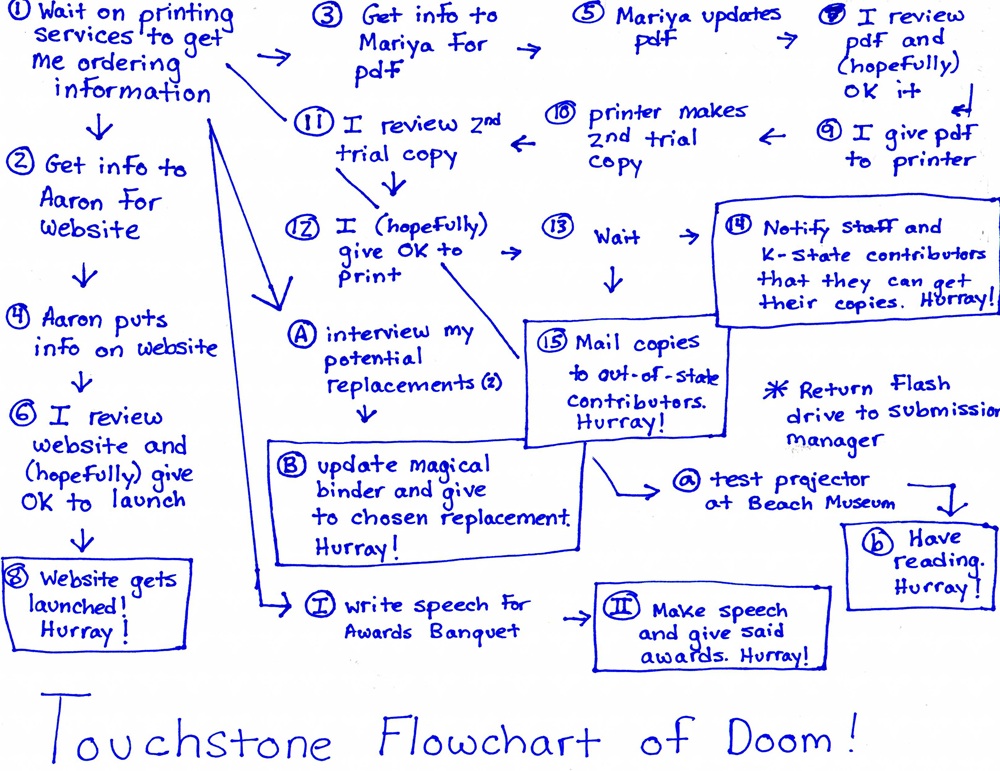 ① Wait on printing
services to get
me ordering
information
② Get info to
Aaron for
website
④ Aaron puts
info on website
⑥ I review
website and
(hopefully) give
OK to launch
⑧ Website gets
launched!
Hurray!
③ Get info to
Mariya for
pdf
⑤ Mariya updates
pdf
I review
pdf and
(hopefully)
OK it
⑨ I give pdf
to printer
⑩ printer makes
2nd trial
copy
⑪ I review 2nd
trial copy
⑫ I (hopefully)
give OK to
print
⑬ Wait
⑭ Notify staff and
K-State contributors
that they can get
their copies. Hurray!
⑮ Mail copies
to out-of-state
contributors.
Hurray!
Ⓐ interview my
potential
replacements (2)
Ⓑ update magical
binder and give
to chosen replacement.
Hurray!
* Return Flash
drive to submission
manager
ⓐ test projector
at Beach Museum
ⓑ Have
reading.
Hurray!
Ⅰ write speech for
Awards Banquet
Ⅱ Make speech
and give said
awards. Hurray!
Touchstone Flowchart of Doom!